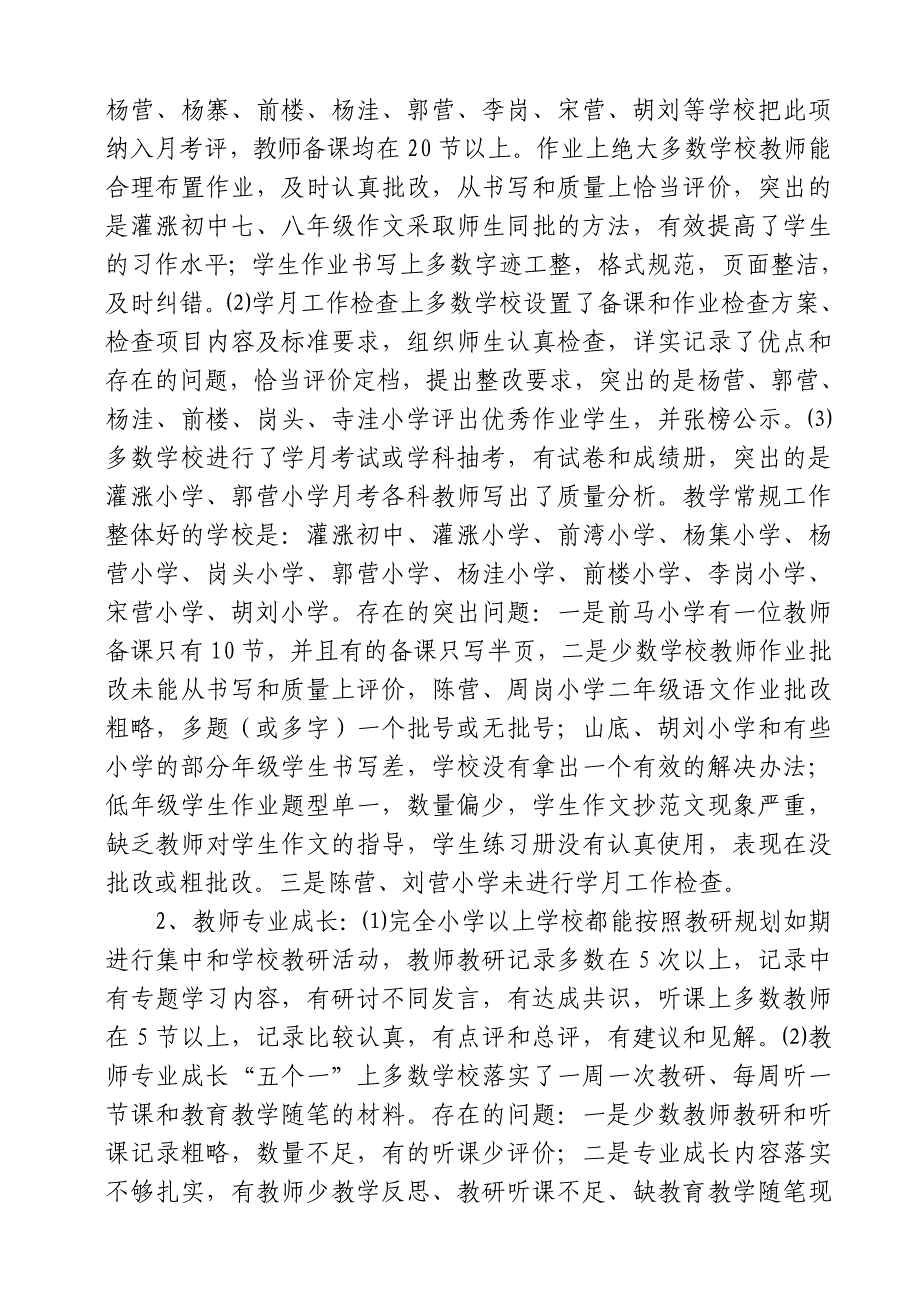 杨营、杨寨、前楼、杨洼、郭营、李岗、宋营、胡刘等学校把此项
纳入月考评，教师备课均在 20 节以上。作业上绝大多数学校教师能
合理布置作业，及时认真批改，从书写和质量上恰当评价，突出的
是灌涨初中七、八年级作文采取师生同批的方法，有效提高了学生
的习作水平；学生作业书写上多数字迹工整，格式规范，页面整洁，
及时纠错。⑵学月工作检查上多数学校设置了备课和作业检查方案、
检查项目内容及标准要求，组织师生认真检查，详实记录了优点和
存在的问题，恰当评价定档，提出整改要求，突出的是杨营、郭营、
杨洼、前楼、岗头、寺洼小学评出优秀作业学生，并张榜公示。⑶
多数学校进行了学月考试或学科抽考，有试卷和成绩册，突出的是
灌涨小学、郭营小学月考各科教师写出了质量分析。教学常规工作
整体好的学校是：灌涨初中、灌涨小学、前湾小学、杨集小学、杨
营小学、岗头小学、郭营小学、杨洼小学、前楼小学、李岗小学、
宋营小学、胡刘小学。存在的突出问题：一是前马小学有一位教师
备课只有 10 节，并且有的备课只写半页，二是少数学校教师作业批
改未能从书写和质量上评价，陈营、周岗小学二年级语文作业批改
粗略，多题（或多字）一个批号或无批号；山底、胡刘小学和有些
小学的部分年级学生书写差，学校没有拿出一个有效的解决办法；
低年级学生作业题型单一，数量偏少，学生作文抄范文现象严重，
缺乏教师对学生作文的指导，学生练习册没有认真使用，表现在没
批改或粗批改。三是陈营、刘营小学未进行学月工作检查。
2、教师专业成长：⑴完全小学以上学校都能按照教研规划如期
进行集中和学校教研活动，教师教研记录多数在 5 次以上，记录中
有专题学习内容，有研讨不同发言，有达成共识，听课上多数教师
在 5 节以上，记录比较认真，有点评和总评，有建议和见解。⑵教
师专业成长“五个一”上多数学校落实了一周一次教研、每周听一
节课和教育教学随笔的材料。存在的问题：一是少数教师教研和听
课记录粗略，数量不足，有的听课少评价；二是专业成长内容落实
不够扎实，有教师少教学反思、教研听课不足、缺教育教学随笔现